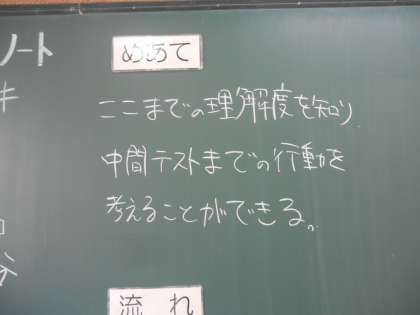 ノート
めあて
ここまでの理解度を知り
中間テストまでの行動を
考えることができる。
流れ